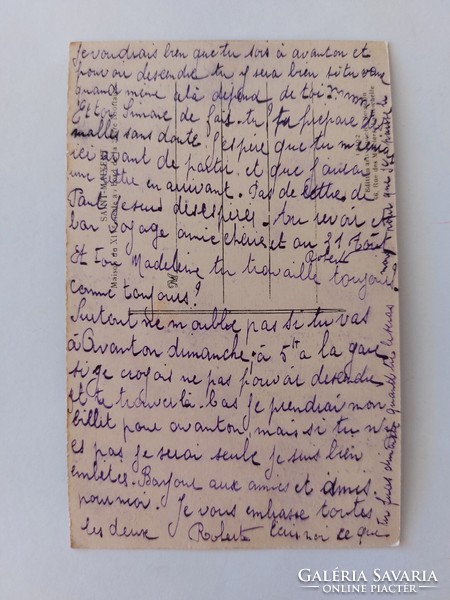 Je voudrais bien que tu sois à avanton et
pouvoir descendre tu y sera bien si tu veux
quand même cela dépend de toi
Et toi Simone de fais-tu? tu prépare tes
malles sans doute. J'espère que tu m'écriras
ici avant de partir, et que j'aurai
une lettre en arrivant. Pas de lettres de
Paul je suis désespérée. Au revoir et
bon voyage amie chérie et au 31 Août
Roberte
Et toi Madeleine tu travaille toujours?
comme toujours?
Surtout ne m'oublie pas si tu vas
à Avanton dimanche, à 5h à la gare
si je croyais ne pas pouvoir descendre
et te trouver là-bas je prendrai mon
billet pour avanton mais si tu n'y
es pas je serai seule je suis bien
embêtée. Bonjour aux amies et amis
pour moi. Je vous embrasse toutes
les deux Roberte Écris-moi ce que
tu fais dimanche quand tu
SAINT-MAIXENT
Maison du XV
GALÉRIA SAVARIA
ONLINE PIACTÉR